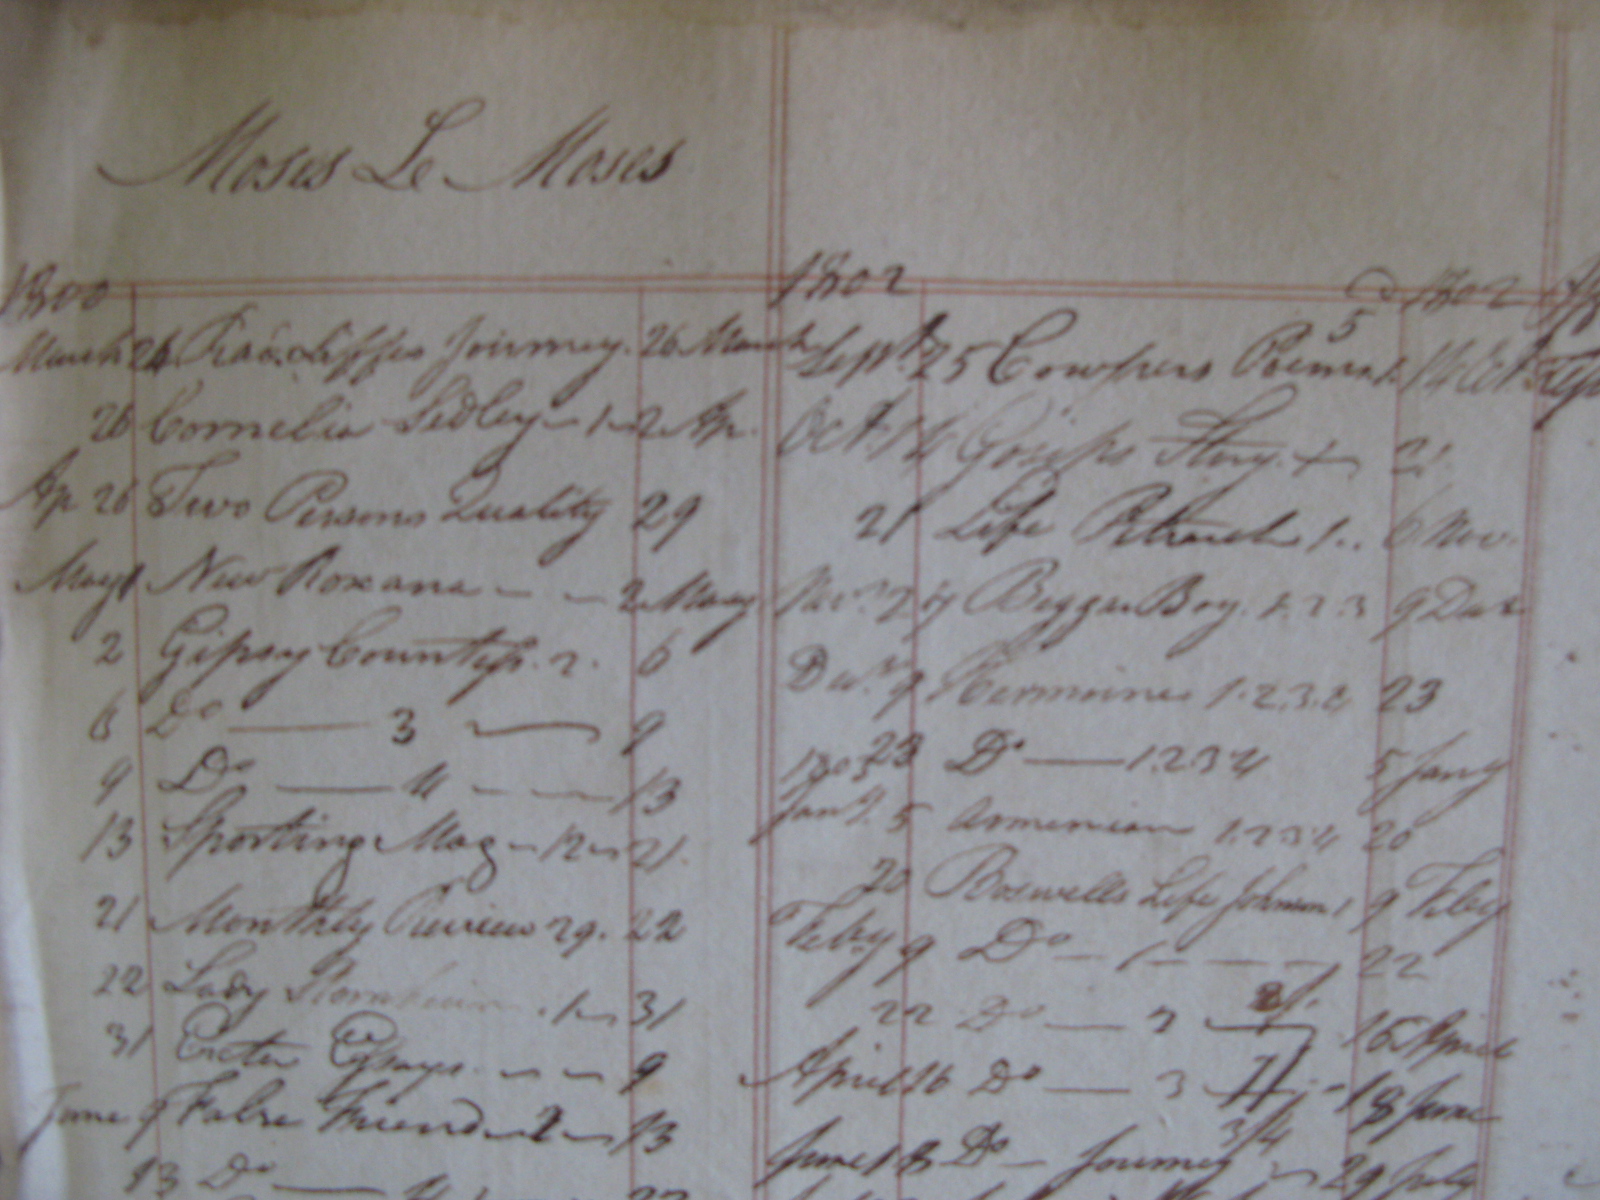 Moses Le Moses
1800
March 26 Radcliffes Journey. 26 March
26 Cornelia Sedley - 1 - 2 Ap.
Ap 26 Two Persons Quality 29
May 1 New Roxana - - 2 May
2 Gipsy Countss. 2. 6
6 Do — 3 — 9
9 Do — 4 - - - 13
13 Sporting Mag - 12 - 21.
21 Monthly Review 29. 22
22 Lady . 1 - 31
31 Exeter Essays. - - 9
June 9 False Friend - 2 - 13
13 Do — 4
1802 1802
Sept. 25 Cowpers Poems 1. 14 Oct.
Oct 14 Gosips Story. + 21
21 Life Petrarch 1.. 6 Nov.
Novr. 24 Beggar Boy. 1. 2. 3 9 Decr
Decr. 9 Hermoine 1. 2. 3. 4 23
23 Do — 1 2 3 4 5 Jany
1803
Jany. 5 Armenian 1. 2 3 4 20
20 Boswells Life Johnson 1 9 Feby
Feby 9 Do — 1 - - - - 22
22 Do — 2 — 16 April
April 16 Do — 3 - 18 June
June 18 Do — Journey 29 July